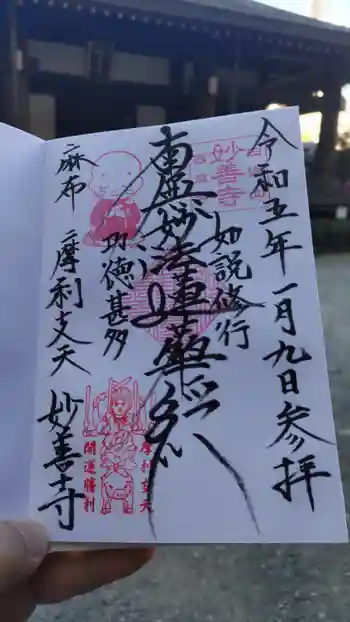 令和五年一月九日参拝
妙善寺
如説修行
南無妙法蓮華経
功徳甚多
摩利支天
開運勝利
麻布 摩利支天 妙善寺